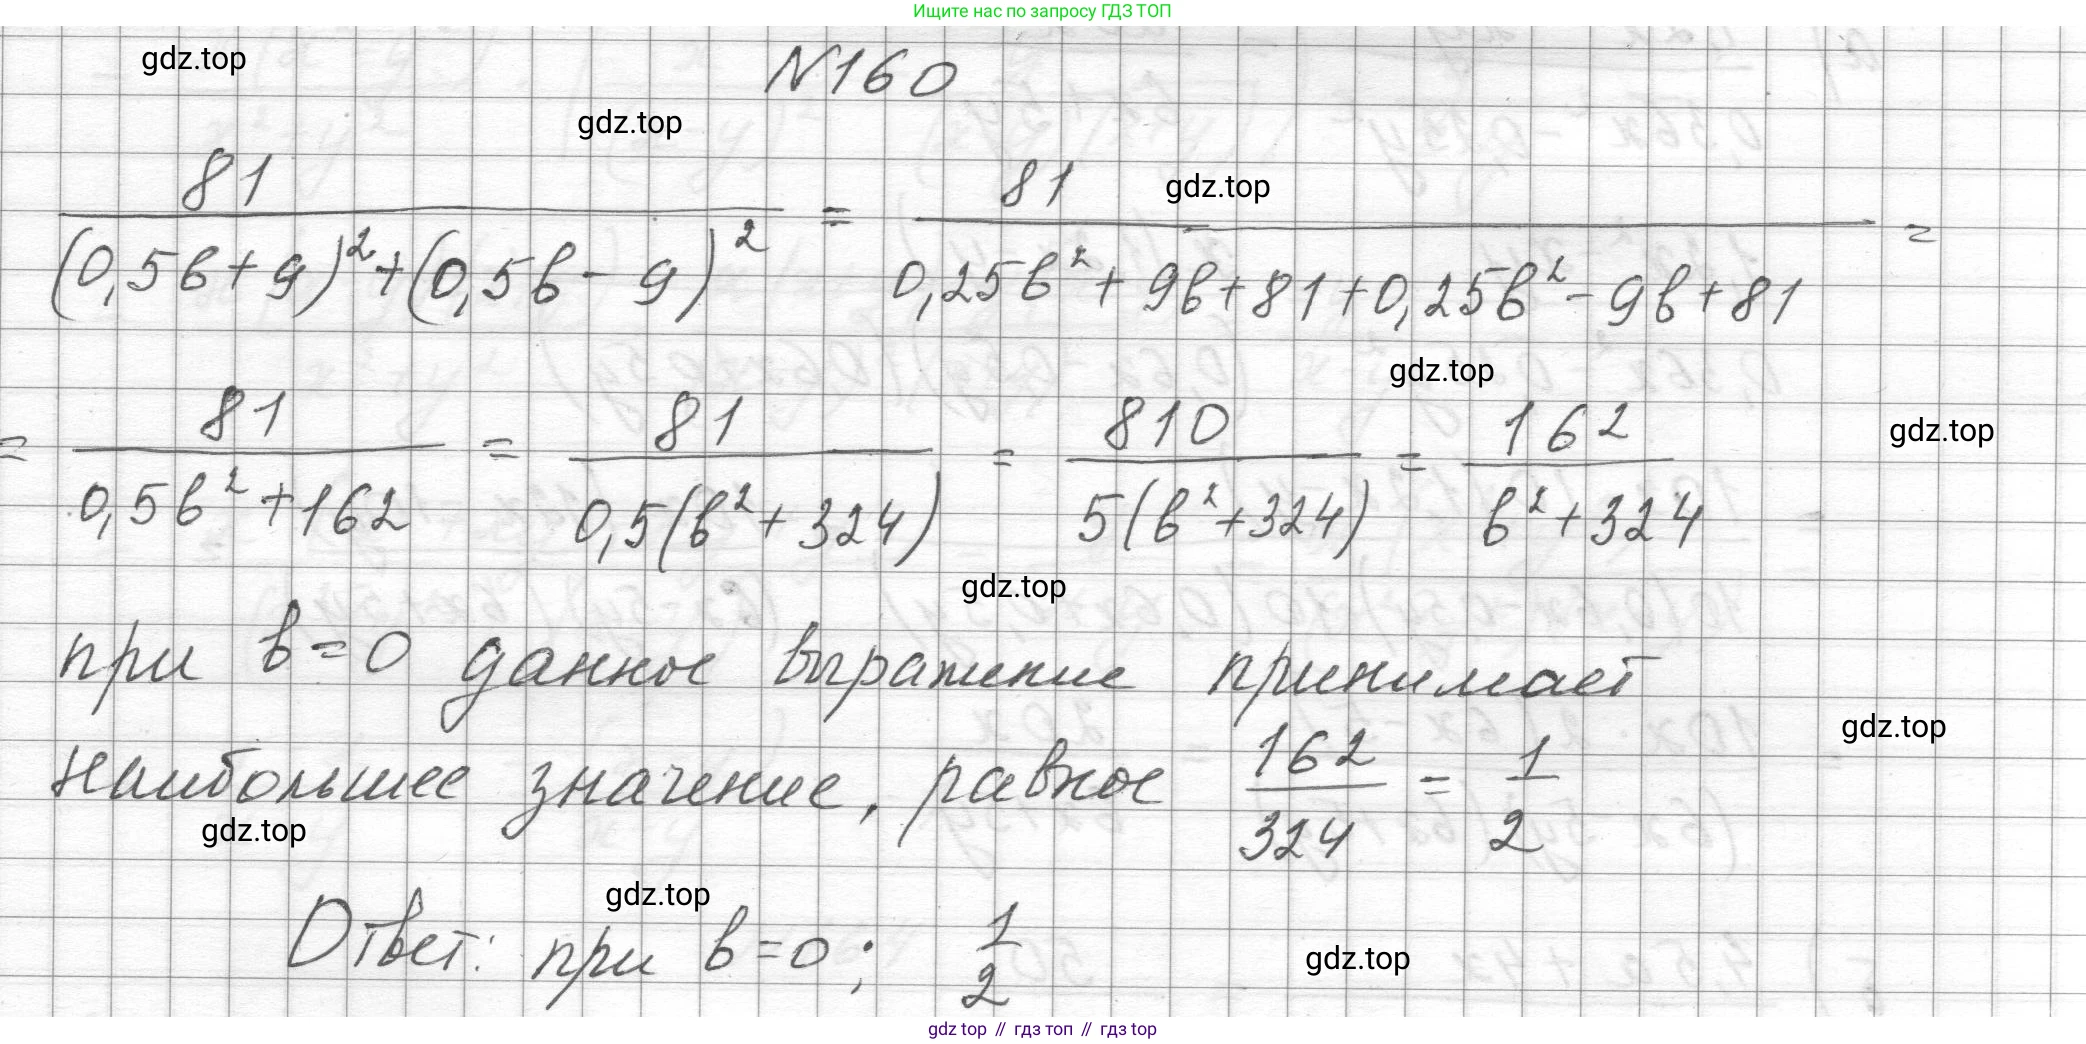 Ищите нас по запросу ГДЗ ТОП
gdz.top
N160
gdz.top
81 / ((0,5b+9)² + (0,5b-9)²) = 81 / (0,25b² + 9b + 81 + 0,25b² - 9b + 81) =
gdz.top
gdz.top
= 81 / (0,5b² + 162) = 81 / (0,5(b² + 324)) = 810 / (5(b² + 324)) = 162 / (b² + 324)
gdz.top
gdz.top
при b=0 данное выражение принимает
gdz.top
наибольшее значение, равное 162/324 = 1/2
gdz.top
gdz.top
Ответ: при b=0; 1/2
gdz.top
gdz top // гдз топ // gdz top